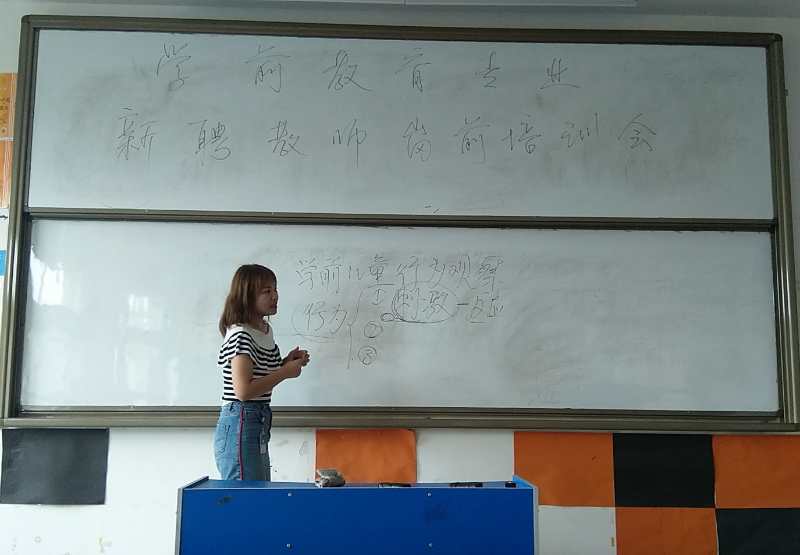 学前教育专业
新聘教师岗前培训会
学前儿童行为观察
行为 ① 刺激-反应
②
③